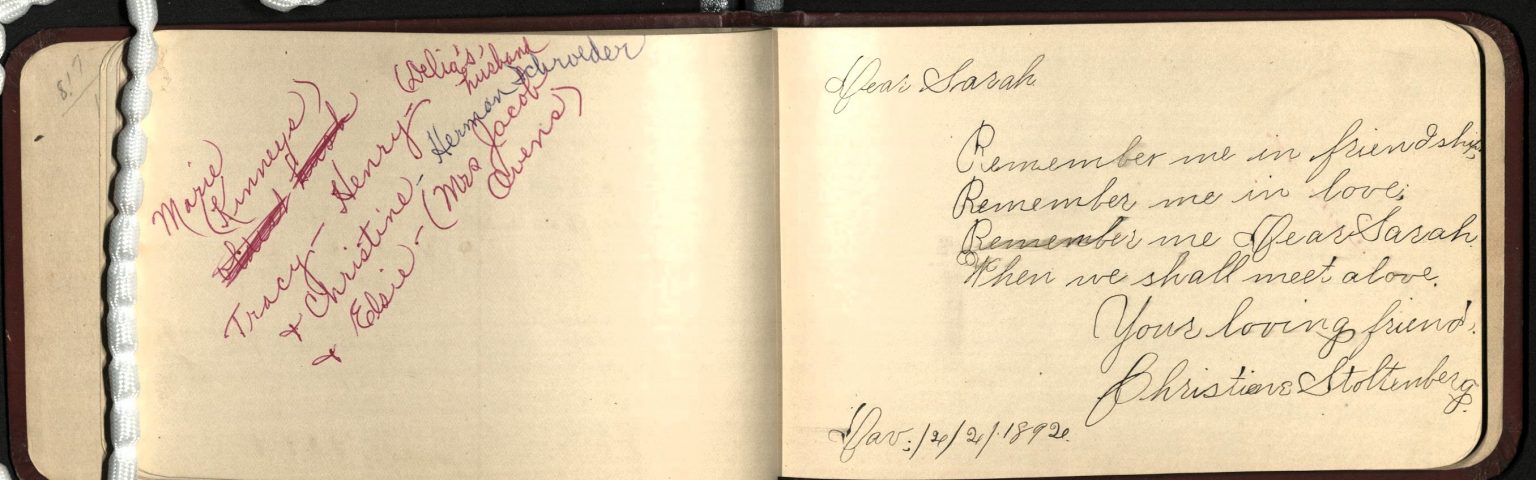 8.!7
Marie
(Kinneys)
Tracy- Henry- (Delia's husband
+ Christine- Herman Schroeder
+ Elsie- (Mrs Jacob
Ovens)
Dear Sarah
Remember me in friendship,
Remember me in love;
Remember me Dear Sarah
When we shall meet alove.
Your loving friend.
Christiene Stoltenberg.
Dav:/2/2/.1892.